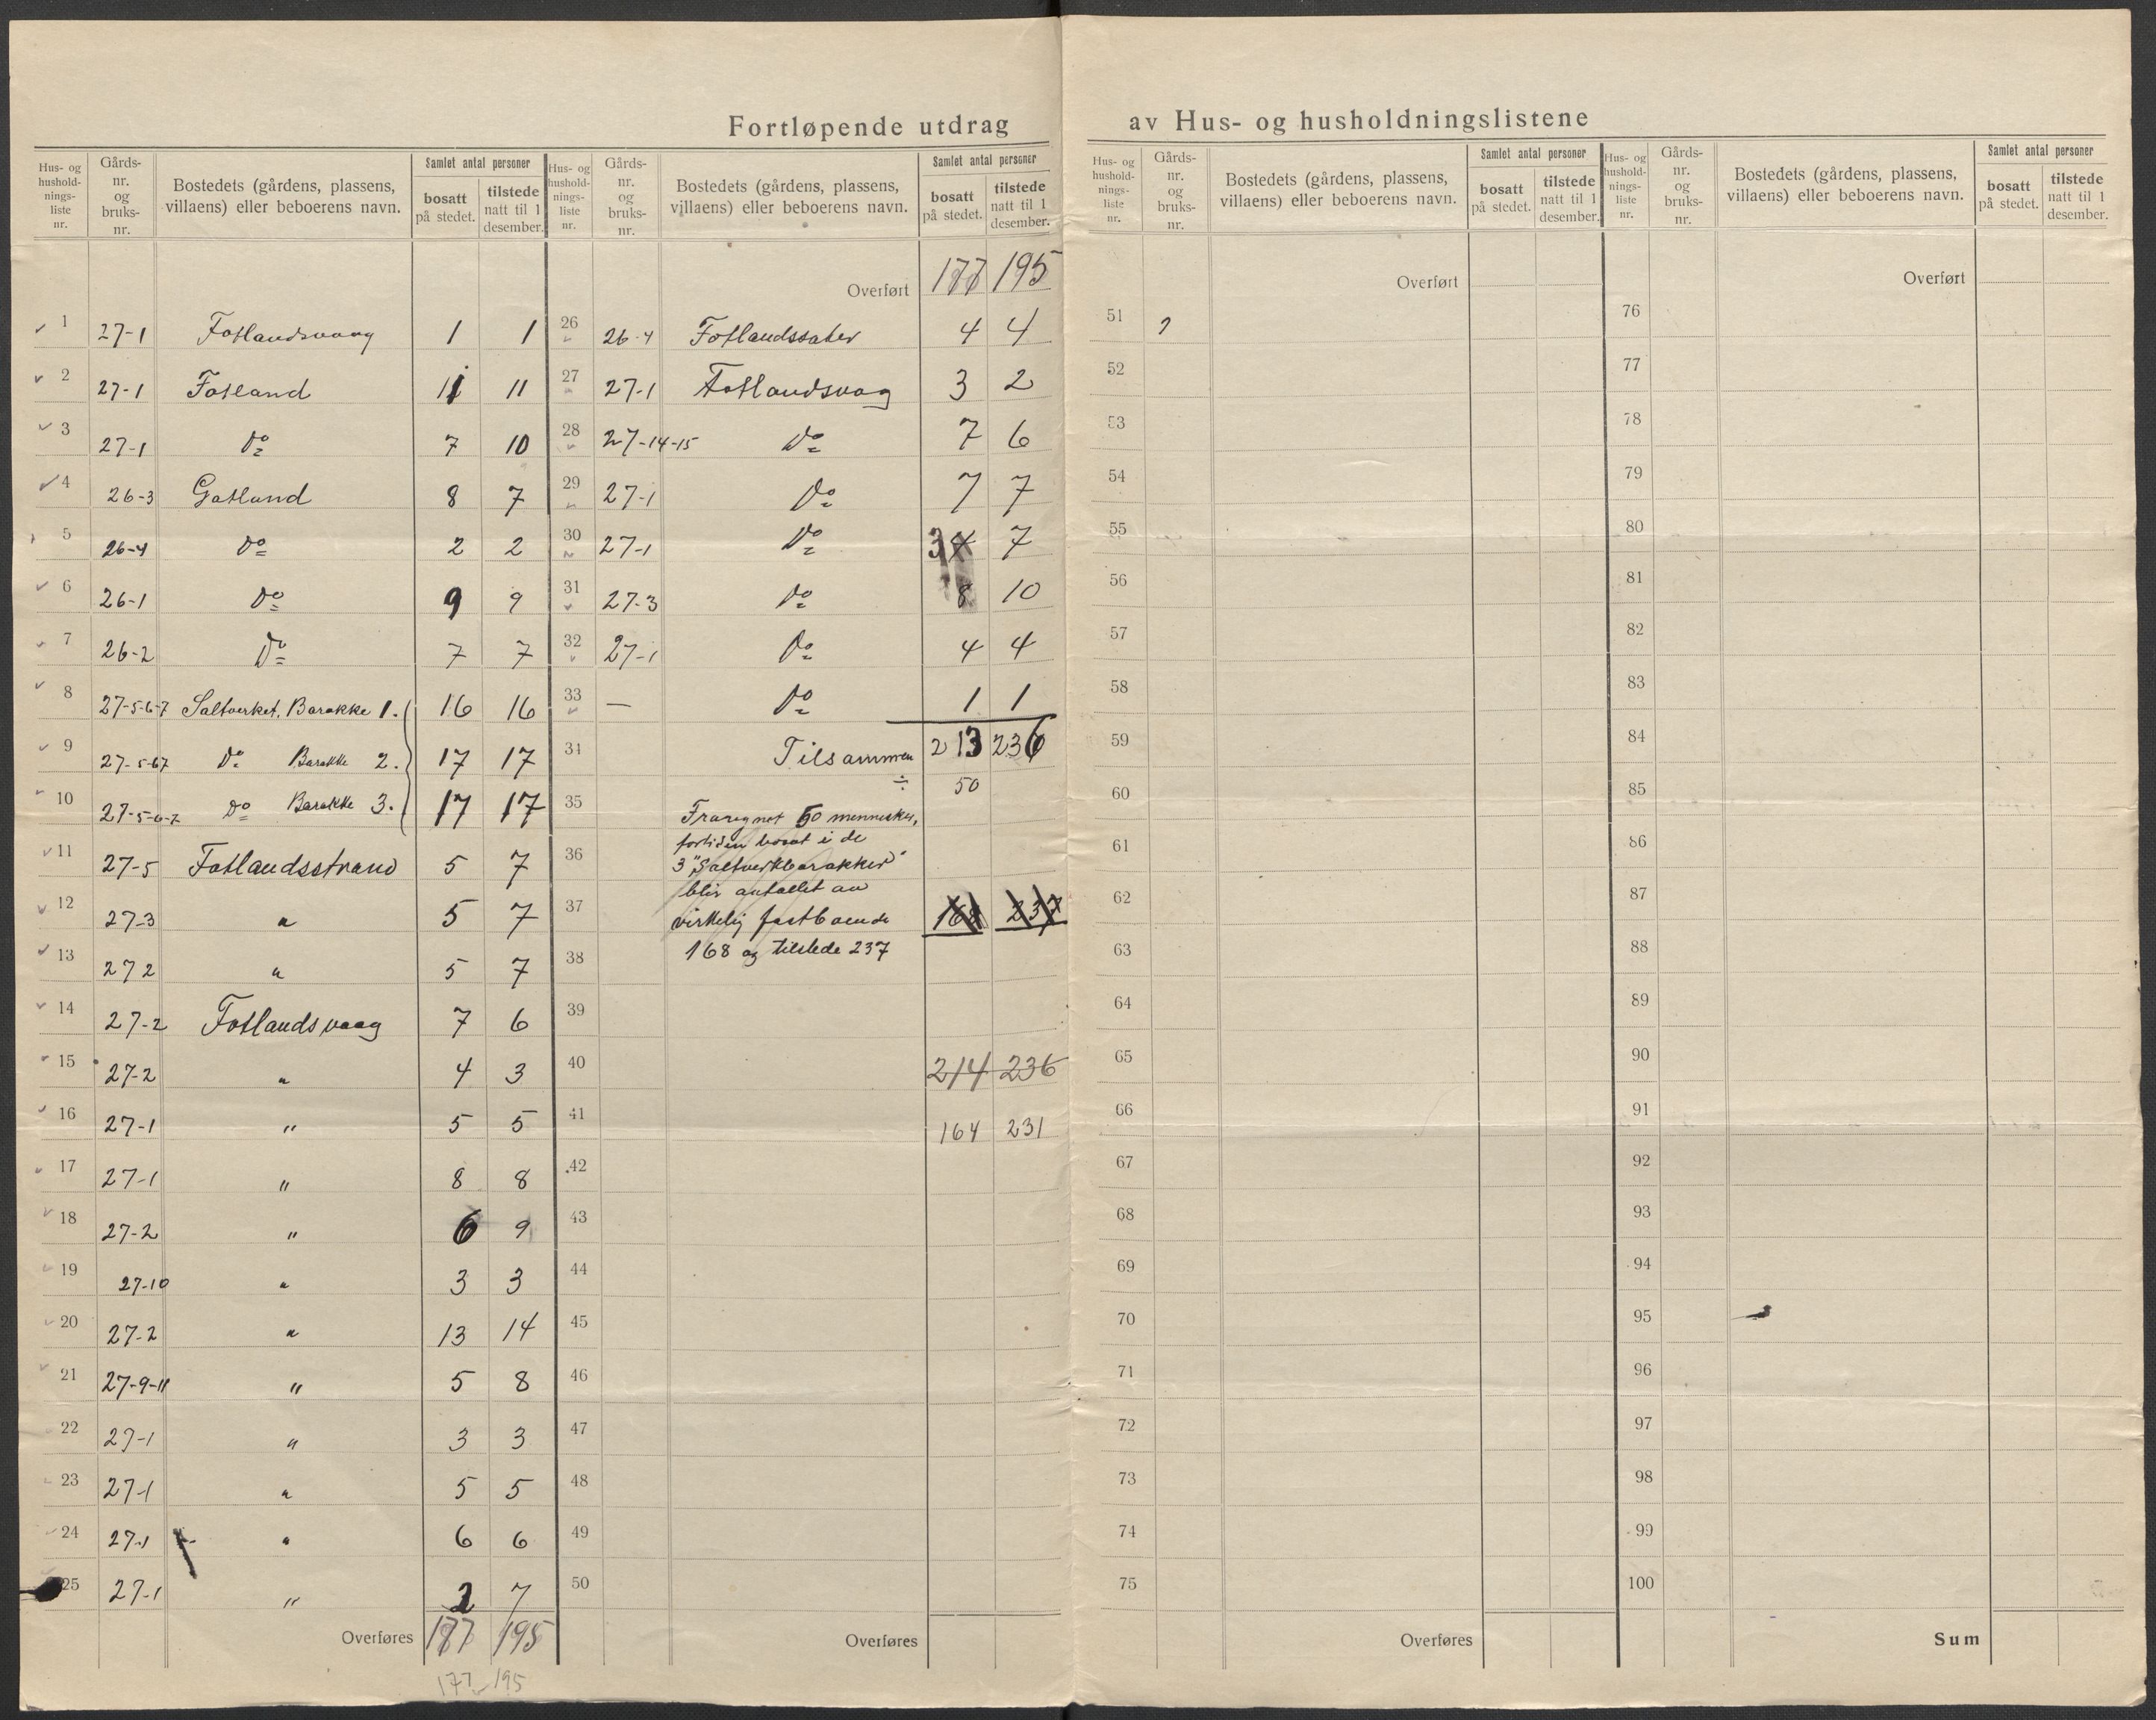 Fortløpende utdrag av Hus- og husholdningslistene
Hus- og hushold-nings-liste nr. Gårds-nr. og bruks-nr. Bostedets (gårdens, plassens, villaens) eller beboerens navn. Samlet antal personer bosatt på stedet. tilstede natt til 1 desember.
1 27-1 Fotlandsvaag 1 1
2 27-1 Fotland 11 11
3 27-1 Do 7 10
4 26-3 Gatland 8 7
5 26-4 Do 2 2
6 26-1 Do 9 9
7 26-2 Do 7 7
8 27-5-6-7 Saltverket, Barakke 1. 16 16
9 27-5-67 Do Barakke 2. 17 17
10 27-5-6-7 Do Barakke 3. 17 17
11 27-5 Fotlandsstrand 5 7
12 27-3 " 5 7
13 27 2 " 5 7
14 27-2 Fotlandsvaag 7 6
15 27-2 " 4 3
16 27-1 " 5 5
17 27-1 " 8 8
18 27-2 " 6 9
19 27-10 " 3 3
20 27-2 " 13 14
21 27-9-11 " 5 8
22 27-1 " 3 3
23 27-1 " 5 5
24 27-1 " 6 6
25 27-1 " 2 7
Overføres 177 195
177 195
Hus- og hushold-nings-liste nr. Gårds-nr. og bruks-nr. Bostedets (gårdens, plassens, villaens) eller beboerens navn. Samlet antal personer bosatt på stedet. tilstede natt til 1 desember.
Overført 177 195
26 26-4 Fotlandssæter 4 4
27 27-1 Fotlandsvag 3 2
28 27-14-15 Do 7 6
29 27-1 Do 7 7
30 27-1 Do 3 4 7
31 27-3 Do 8 10
32 27-1 Do 4 4
33 — Do 1 1
34 Tilsammen 213 236
÷ 50
35 Fraregnet 50 mennesker,
fortiden bosat i de
36 3 "Saltverkbarakker"
blir antallet av
37 virkelig fastboende 168 237
38 168 og tilstede 237
39
40 214 236
41 164 231
42
43
44
45
46
47
48
49
50
Overføres
Hus- og hushold-nings-liste nr. Gårds-nr. og bruks-nr. Bostedets (gårdens, plassens, villaens) eller beboerens navn. Samlet antal personer bosatt på stedet. tilstede natt til 1 desember.
Overført
51
52
53
54
55
56
57
58
59
60
61
62
63
64
65
66
67
68
69
70
71
72
73
74
75
Overføres
Hus- og hushold-nings-liste nr. Gårds-nr. og bruks-nr. Bostedets (gårdens, plassens, villaens) eller beboerens navn. Samlet antal personer bosatt på stedet. tilstede natt til 1 desember.
Overført
76
77
78
79
80
81
82
83
84
85
86
87
88
89
90
91
92
93
94
95
96
97
98
99
100
Sum